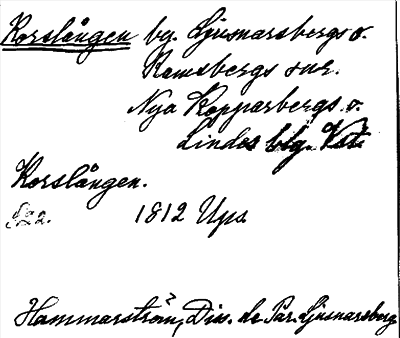 Korslången by. Ljusnarsbergs o.
Ramsbergs snr.
Nya Kopparbergs o.
Lindes blg. Vstm
Korslången.
S22. 1812 Ups.
Hammarström, Diss. de Par. Ljusnarsberg